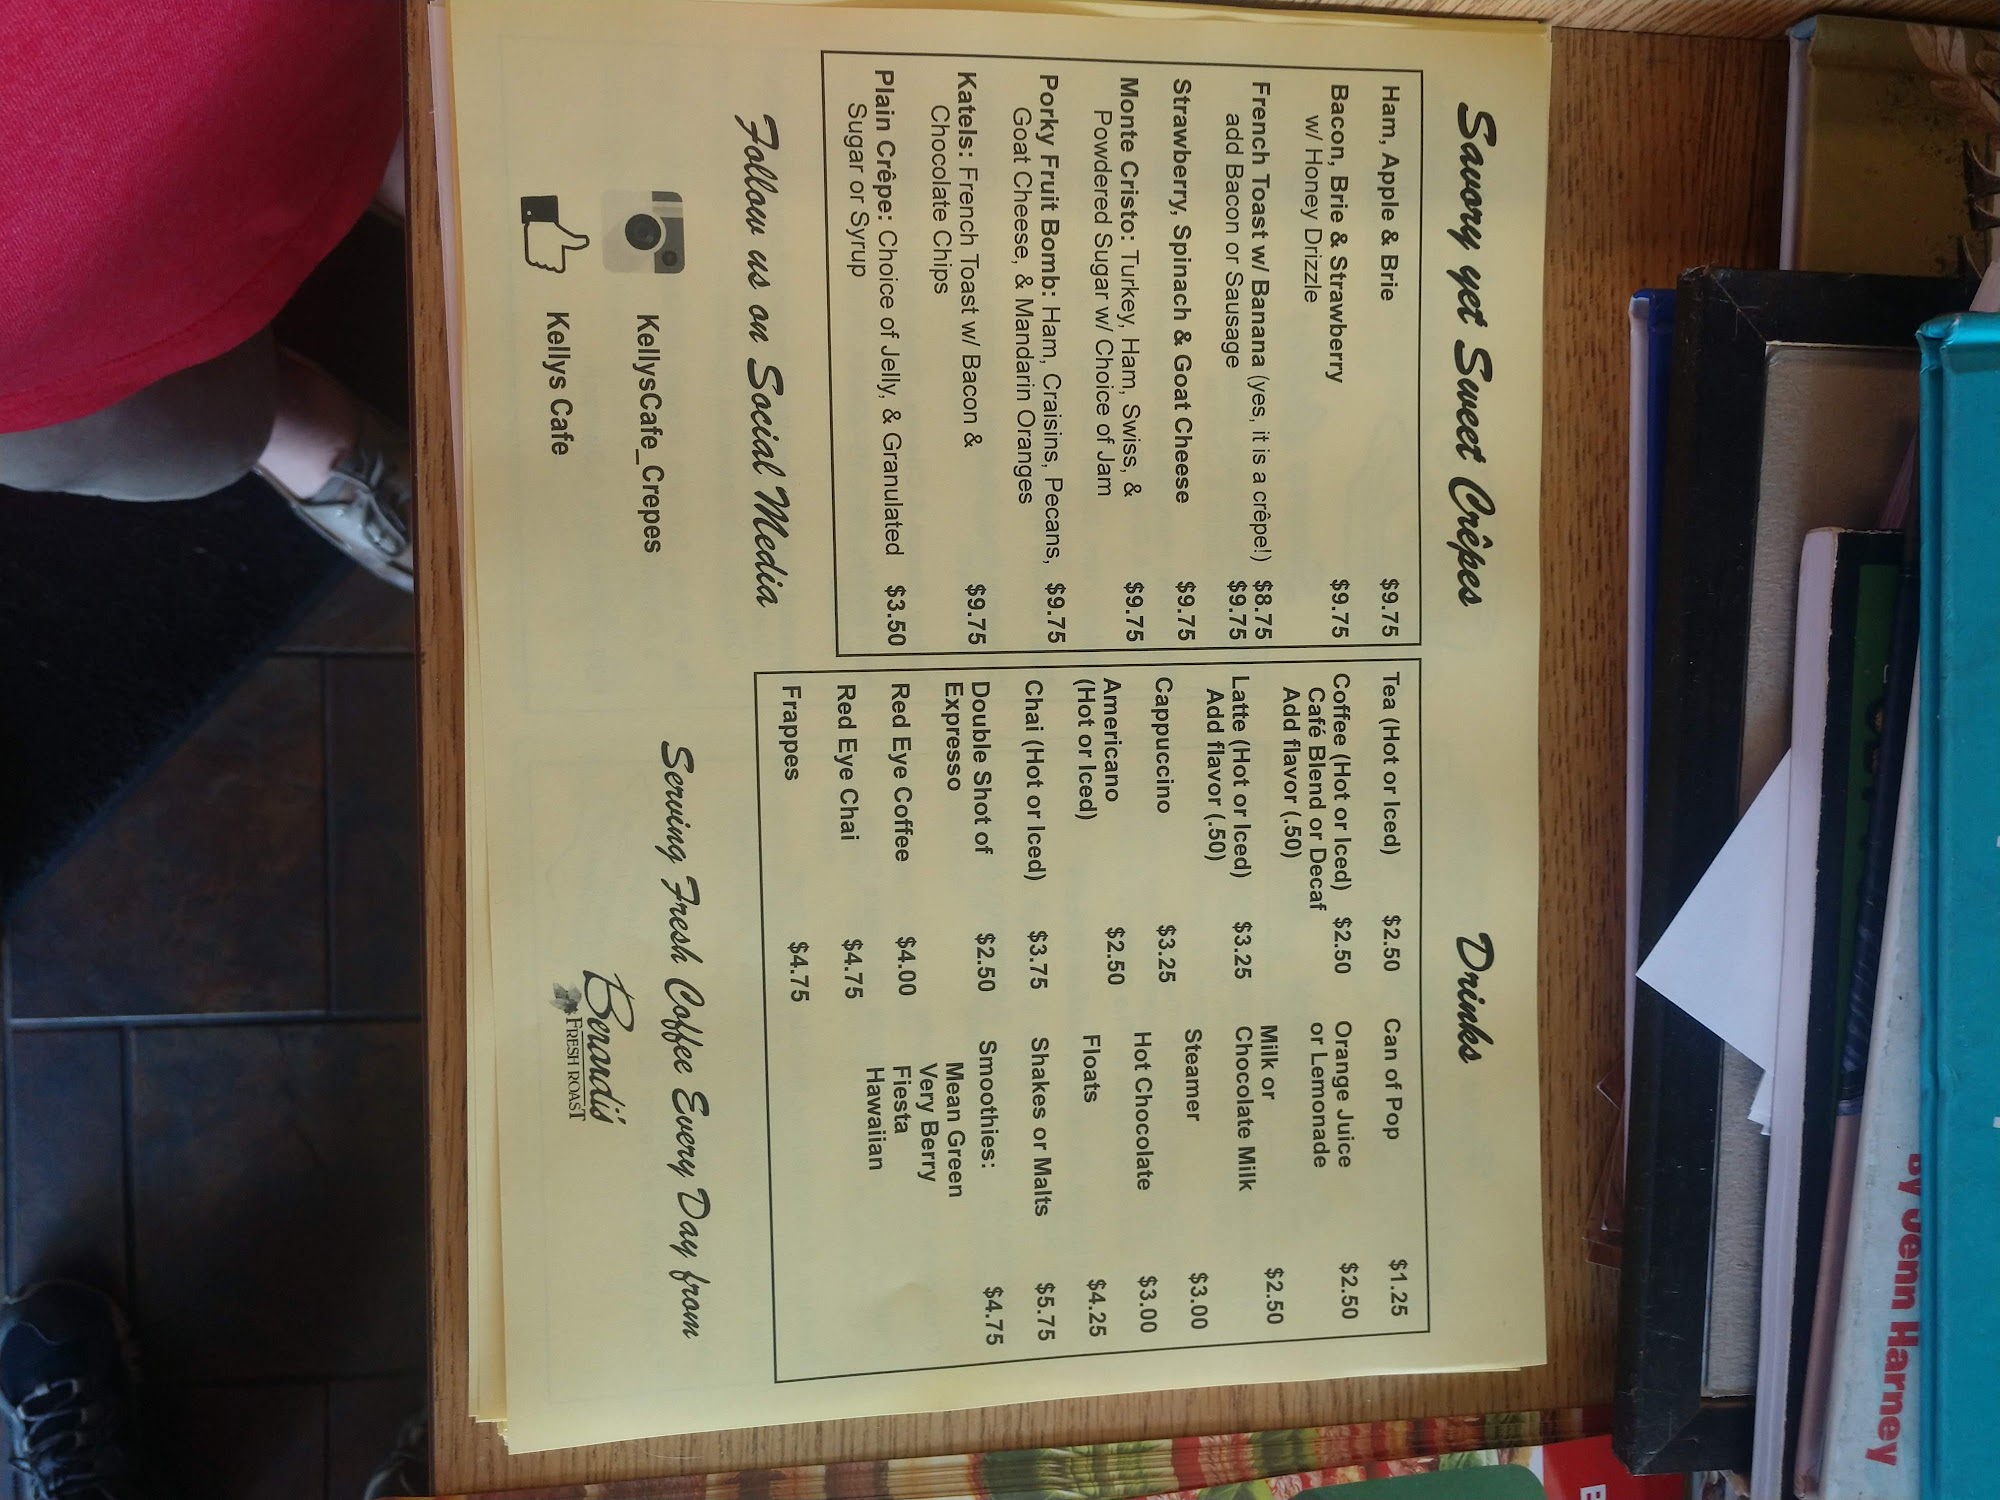 Savory yet Sweet Crêpes
Ham, Apple & Brie $9.75
Bacon, Brie & Strawberry $9.75
w/ Honey Drizzle
French Toast w/ Banana (yes, it is a crêpe!) $8.75
add Bacon or Sausage $9.75
Strawberry, Spinach & Goat Cheese $9.75
Monte Cristo: Turkey, Ham, Swiss, & $9.75
Powdered Sugar w/ Choice of Jam
Porky Fruit Bomb: Ham, Craisins, Pecans, $9.75
Goat Cheese, & Mandarin Oranges
Katels: French Toast w/ Bacon & $9.75
Chocolate Chips
Plain Crêpe: Choice of Jelly, & Granulated $3.50
Sugar or Syrup
Follow us on Social Media
KellysCafe_Crepes
Kellys Cafe
Drinks
Tea (Hot or Iced) $2.50
Coffee (Hot or Iced) $2.50
Café Blend or Decaf
Add flavor (.50)
Latte (Hot or Iced) $3.25
Add flavor (.50)
Cappuccino $3.25
Americano $2.50
(Hot or Iced)
Chai (Hot or Iced) $3.75
Double Shot of $2.50
Expresso
Red Eye Coffee $4.00
Red Eye Chai $4.75
Frappes $4.75
Can of Pop $1.25
Orange Juice $2.50
or Lemonade
Milk or $2.50
Chocolate Milk
Steamer $3.00
Hot Chocolate $3.00
Floats $4.25
Shakes or Malts $5.75
Smoothies: $4.75
Mean Green
Very Berry
Fiesta
Hawaiian
Serving Fresh Coffee Every Day from
Berardi's
FRESH ROAST
By Jenn Harney